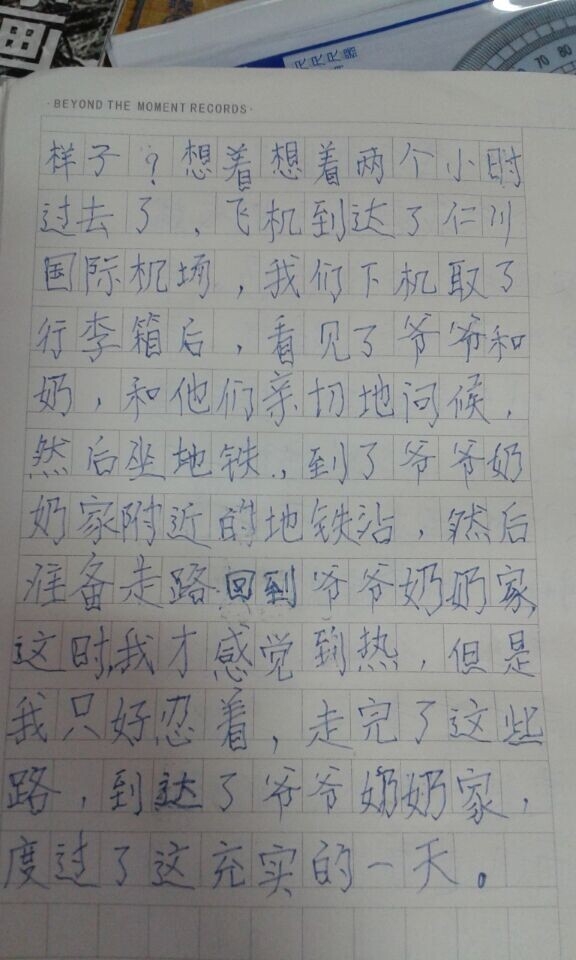 画
尺尺尺器
70 80 90
60
·BEYOND THE MOMENT RECORDS·
样子？想着想着两个小时
过去了，飞机到达了仁川
国际机场，我们下机取了
行李箱后，看见了爷爷和
奶，和他们亲切地问候，
然后坐地铁，到了爷爷奶
奶家附近的地铁站，然后
准备走路回到爷爷奶奶家，
这时，我才感觉到热，但是
我只好忍着，走完了这些
路，到达了爷爷奶奶家，
度过了这充实的一天。